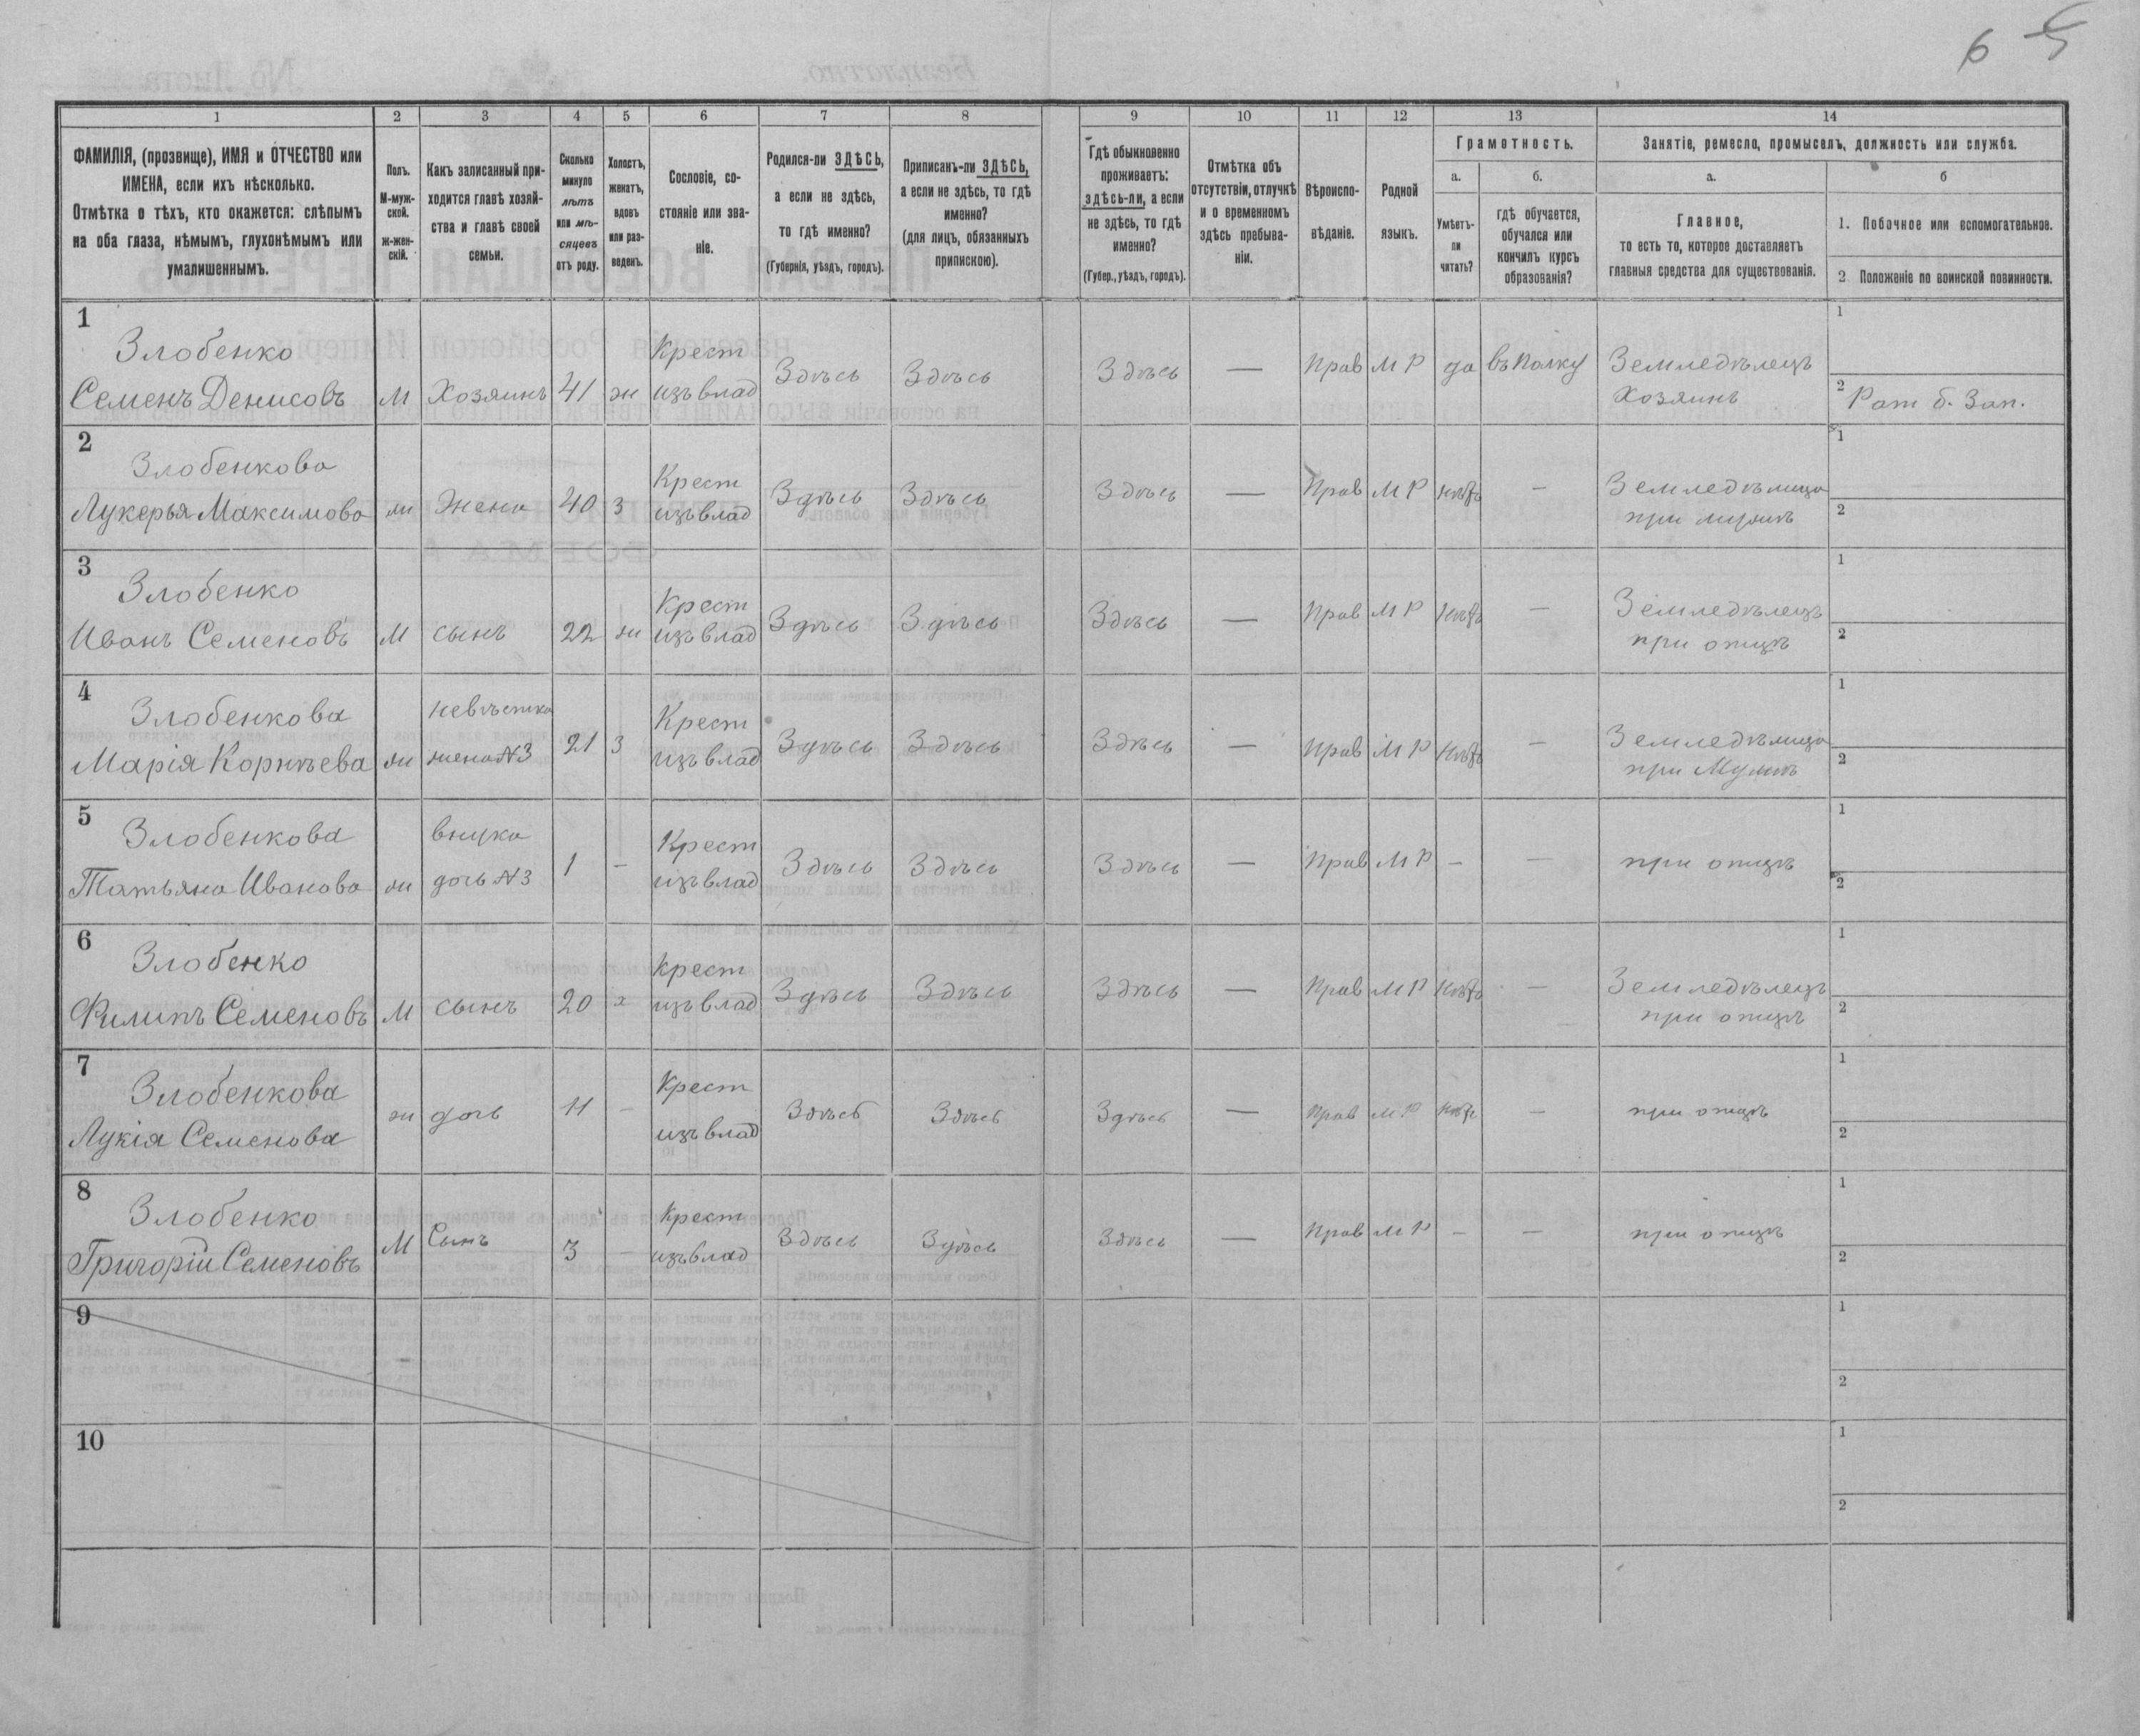 6 5
1 2 3 4 5 6 7 8 9 10 11 12 13 14
ФАМИЛІЯ, (прозвище), ИМЯ и ОТЧЕСТВО или
ИМЕНА, если ихъ нѣсколько.
Отмѣтка о тѣхъ, кто окажется: слѣпымъ
на оба глаза, нѣмымъ, глухонѣмымъ или
умалишеннымъ.
Полъ.
М-муж-
ской.
ж-жен-
скій.
Какъ записанный при-
ходится главѣ хозяй-
ства и главѣ своей
семьи.
Сколько
минуло
лѣтъ
или мѣ-
сяцевъ
отъ роду.
Холостъ,
женатъ,
вдовъ
или раз-
веденъ.
Сословіе, со-
стояніе или зва-
ніе.
Родился-ли ЗДѢСЬ,
а если не здѣсь,
то гдѣ именно?
(Губернія, уѣздъ, городъ).
Приписанъ-ли ЗДѢСЬ,
а если не здѣсь, то гдѣ
именно?
(для лицъ, обязанныхъ
припискою).
Гдѣ обыкновенно
проживаетъ:
здѣсь-ли, а если
не здѣсь, то гдѣ
именно?
(Губер., уѣздъ, городъ).
Отмѣтка объ
отсутствіи, отлучкѣ
и о временномъ
здѣсь пребыва-
ніи.
Вѣроиспо-
вѣданіе.
Родной
языкъ.
Грамотность.
а.
Умѣетъ-
ли
читать?
б.
гдѣ обучается,
обучался или
кончилъ курсъ
образованія?
Занятіе, ремесло, промыселъ, должность или служба.
а.
Главное,
то есть то, которое доставляетъ
главныя средства для существованія.
б
1. Побочное или вспомогательное.
2 Положеніе по воинской повинности.
1
Злобенко
Семенъ Денисовъ
м
Хозяинъ
41
жн
Крест
изъ влад
Здѣсь
Здѣсь
Здѣсь
—
Прав
М Р
да
въ Полку
Земледѣлецъ
Хозяинъ
1
2 Рат б. Зап.
2
Злобенкова
Лукерья Максимова
жн
Жена
40
З
Крест
изъ влад
Здѣсь
Здѣсь
Здѣсь
—
Прав
М Р
нѣтъ
—
Земледѣлица
при мужѣ
1
2
3
Злобенко
Иванъ Семеновъ
М
сынъ
22
жн
Крест
изъ влад
Здѣсь
Здѣсь
Здѣсь
—
Прав
М Р
нѣтъ
—
Земледѣлецъ
при отцѣ
1
2
4
Злобенкова
Марія Корнѣева
жн
невѣстка
жена №3
21
З
Крест
изъ влад
Здѣсь
Здѣсь
Здѣсь
—
Прав
М Р
нѣтъ
—
Земледѣлица
при Мужѣ
1
2
5
Злобенкова
Татьяна Иванова
жн
внука
дочь №3
1
–
Крест
изъ влад
Здѣсь
Здѣсь
Здѣсь
—
Прав
М Р
–
—
при отцѣ
1
2
6
Злобенко
Филипъ Семеновъ
М
сынъ
20
х
крест
изъ влад
Здѣсь
Здѣсь
Здѣсь
—
Прав
М Р
нѣтъ
—
Земледѣлецъ
при отцѣ
1
2
7
Злобенкова
Лукія Семенова
жн
дочь
11
–
Крест
изъ влад
Здѣсь
Здѣсь
Здѣсь
—
Прав
М Р
нѣтъ
—
при отцѣ
1
2
8
Злобенко
Григорій Семеновъ
М
Сынъ
3
—
Крест
изъ влад
Здѣсь
Здѣсь
Здѣсь
—
Прав
М Р
–
—
при отцѣ
1
2
9
1
2
10
1
2